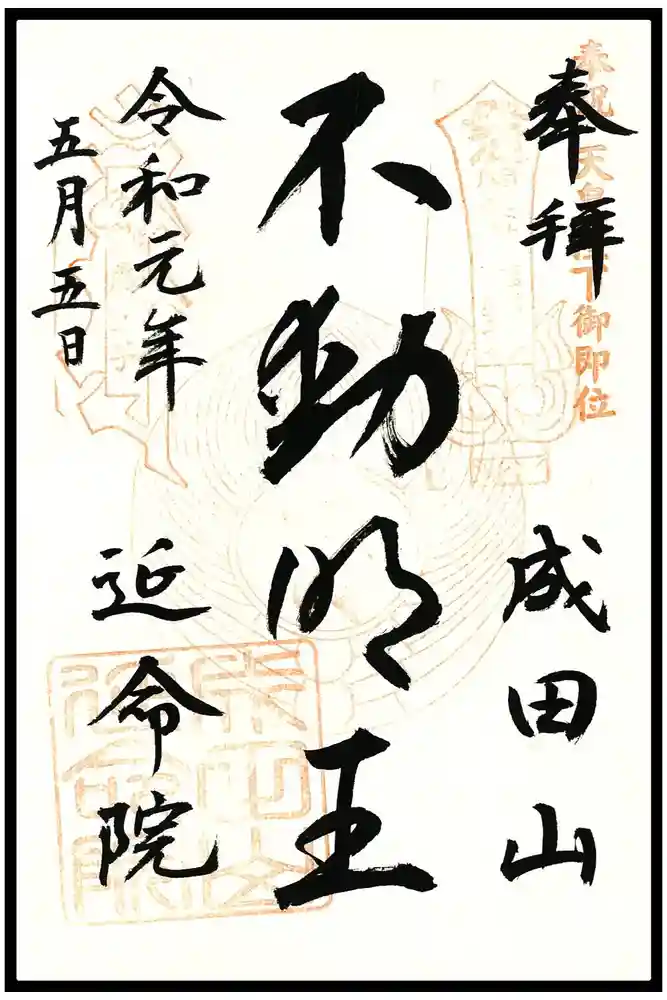 奉拝
奉祝 天皇陛下御即位
成田山
不動明王
令和元年
五月五日
延命院